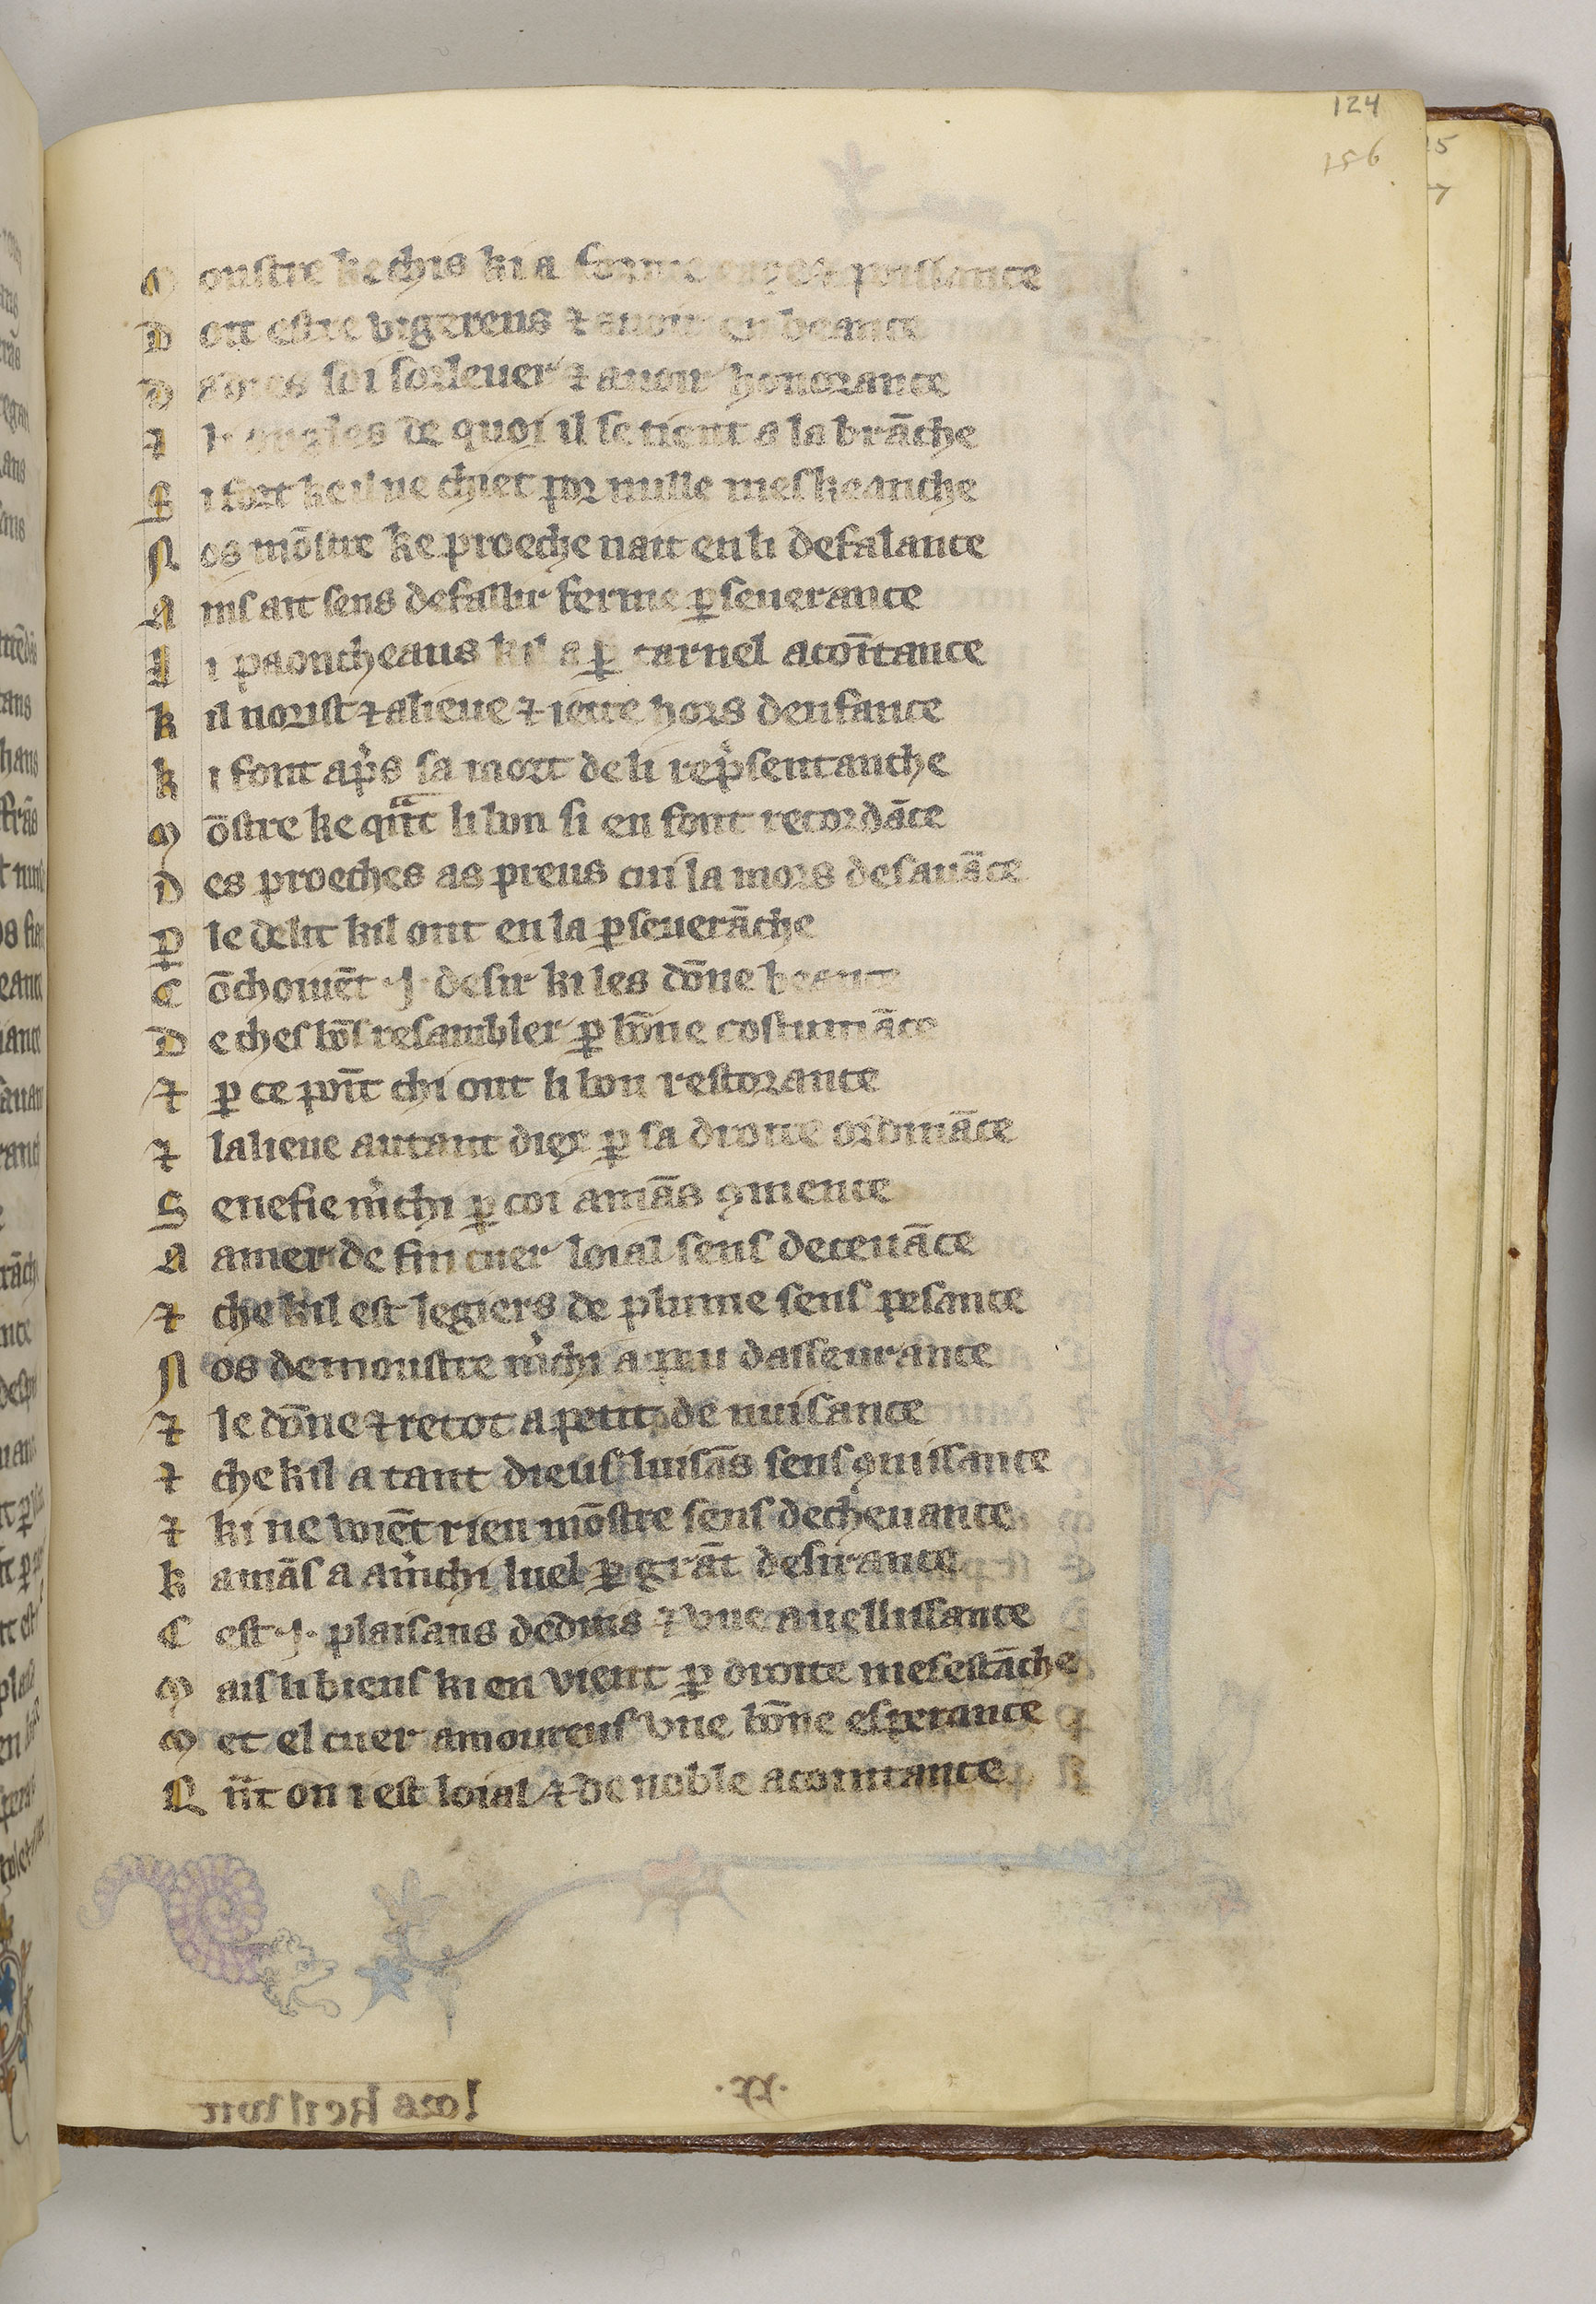 124
156
M oustre ke chis ki a forme puissance
D oit estre vigereus ⁊ auoir en beance
D soi sorleuer ⁊ auoir honorance
⁊ l ongles de quoi il se tient a la brāche
S i fort ke il ne chiet por nulle meskeanche
N os mōstre ke proeche nait en li defalance
A ins ait sens defallir ferme ꝑseuerance
L i paoncheaus kil a ꝑ carnel acoītance
k il norist ⁊ alieue ⁊ iette hors denfance
k i font ap̾s sa mort de li rep̾sentanche
M ōstre ke qn̄t li bon si en font recordāce
D es proeches as preus cui la mors desauāce
P le delit kil ont en la ꝑseuerāche
C ōchoiuēt ·J· desir ki les dōne beance
D e ches bōs resambler ꝑ bōne costumāce
⁊ ꝑ ce point chi ont li bon restorance
⁊ lalieue autant diex ꝑ sa droite ordināce
S enefie m̾chi ꝑ coi amās ꝯmence
A amer de fin cuer loial sens deceuāce
⁊ che kil est legiers de plume sens pesance
N os demoustre m̾chi a peu dasseurance
⁊ le dōne ⁊ retot a petit de nuisance
⁊ che kil a tant dieus luisās sens ꝯnissance
⁊ ki ne voiēt rien mōstre sens decheuance
k amās a am̾chi luel ꝑ grāt desirance
C est ·J· plaisans deduis ⁊ vne auellissance
M ais li biens ki en vient ꝑ droite mesestāche
M et el cuer amoureus vne bōne esperance
Q n̄t on i est loial ⁊ de noble acointance
lors ke il voit